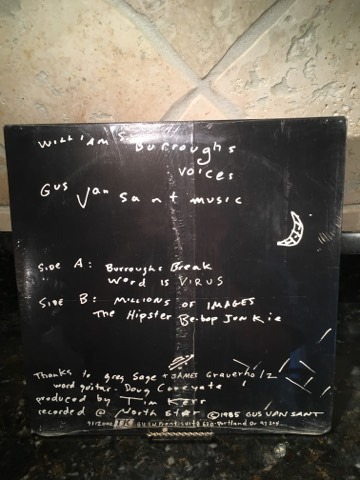 William S Burroughs
voices
Gus Van Sant music
Side A: Burroughs Break
Word is VIRUS
SIDE B: MILLIONS OF IMAGES
The Hipster Be-bop Junkie
Thanks to greg Sage + JAMES Grauerholz
word guitar- Doug
produced by Tim Kerr
recorded @ North Star ©1985 GUS VAN SANT
Portland Or